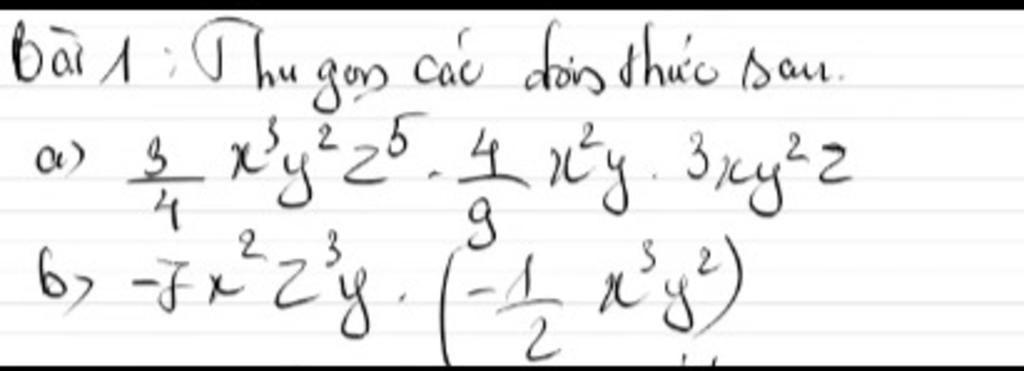 Bài 1: Thu gọn các đơn thức sau.
a) 3/4 x³y²z⁵ . 4/9 x²y . 3xy²z
b) -7x²z³y . (-1/2 x³y²)